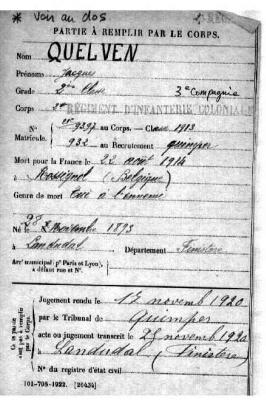 * Voir au dos
PARTIE À REMPLIR PAR LE CORPS.
Nom QUELVEN
Prénoms Jacques
Grade 2ème Classe 3e Compagnie
Corps 2e RÉGIMENT D'INFANTERIE COLONIALE
N° 9397 au Corps. — Classe 1913
Matricule. 932 au Recrutement Quimper
Mort pour la France le 22 août 1914
à Rossignol (Belgique)
Genre de mort tué à l'ennemi
Né le 1893
à Landudal Département Finistère
Arrt municipal (pr Paris et Lyon), à défaut rue et N°.
Jugement rendu le 17 novemb 1920
par le Tribunal de Quimper
acte ou jugement transcrit le 25 novemb 1920
à Landudal (Finistère)
N° du registre d'état civil
101-708-1922. [26434]